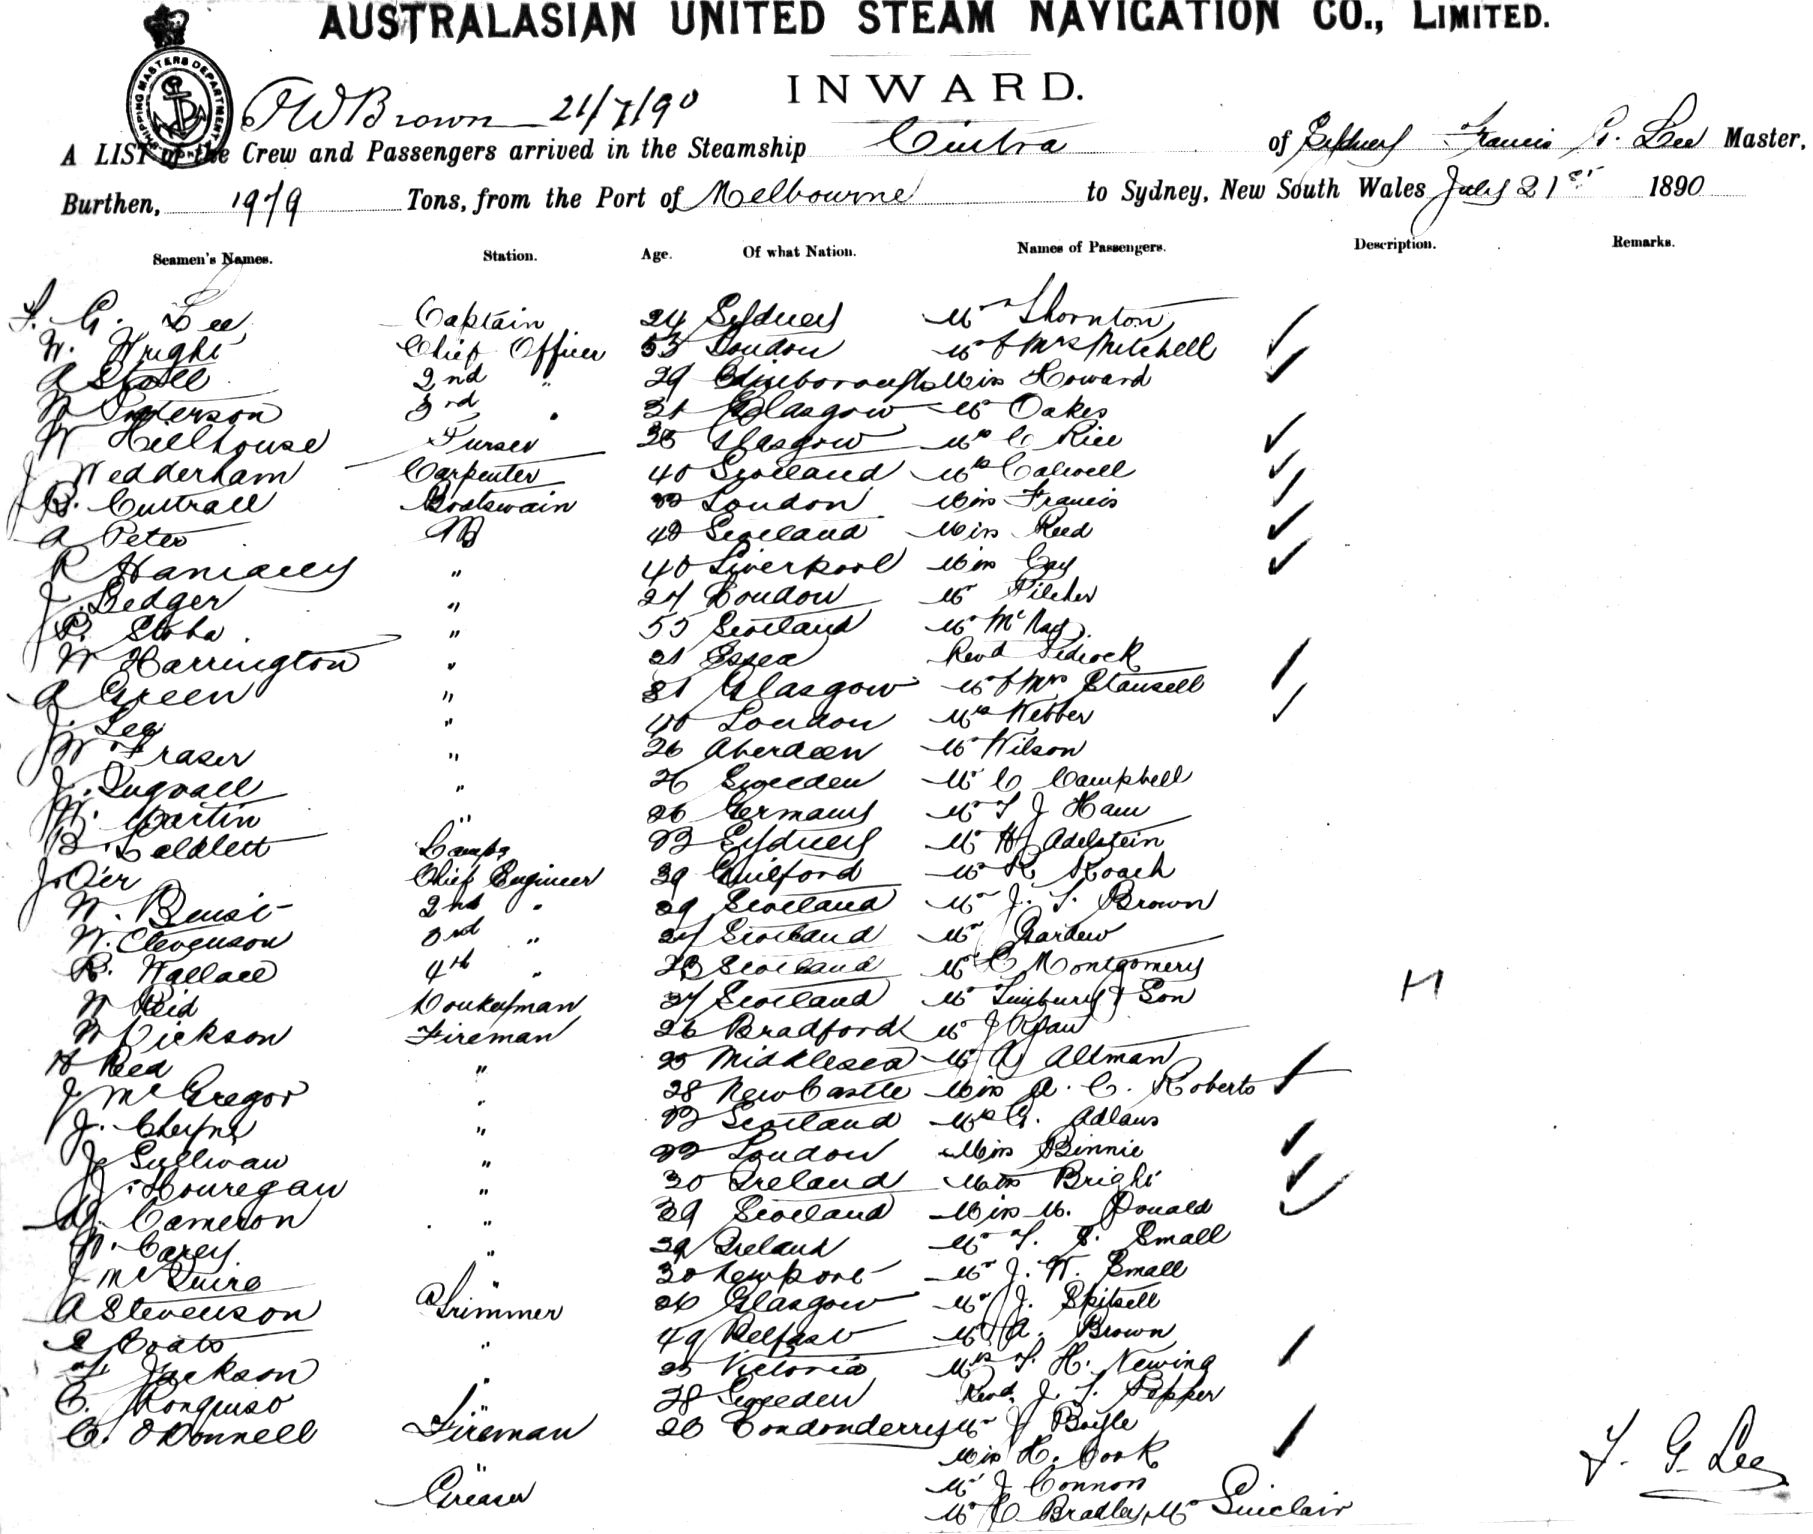 AUSTRALASIAN UNITED STEAM NAVIGATION CO., LIMITED.
INWARD.
SHIPPING MASTERS DEPARTMENT
Brown 21/7/90
A LIST of the Crew and Passengers arrived in the Steamship Cintra of Sydney Francis G. Lee Master,
Burthen, 1979 Tons, from the Port of Melbourne to Sydney, New South Wales July 21st 1890
Seamen's Names. Station. Age. Of what Nation. Names of Passengers. Description. Remarks.
F. G. Lee Captain 24 Sydney Mr Thornton
W. Wright Chief Officer 53 London Mr & Mrs Mitchell
A 2nd " 29 Edinborough Miss Howard
W 3rd " 31 Glasgow Mr Oakes
W Hillhouse Purser Glasgow Mrs C Rice
J Wedderham Carpenter 40 Scotland Mrs Calwell
B. Cuttrall Boatswain London Miss Francis
A Peter AB Scotland Miss Reed
R " 40 Liverpool Miss
J. Ledger " 24 London Mr Pilcher
" 55 Scotland Mr
W Harrington " 21 Essex Revd
A Green " 31 Glasgow Mr & Mrs Stansell
J. Lee " 40 London Mrs Webber
W Fraser " 26 Aberdeen Mr Wilson
J. " 26 Sweeden Mr C Campbell
W. Martin " 26 Germany Mr T J Ham
B. Lamps 23 Sydney Mr H Adelstein
J. Chief Engineer 39 Guilford Mr R Roach
W. 2nd " 29 Scotland Mr J. S. Brown
W. Stevenson 3rd " 24 Scotland Mr
R. Wallace 4th " 23 Scotland Mr C Montgomery
W Reid Donkeyman Scotland Mr & Son H
W Dickson Fireman 26 Bradford Mr J Ryan
H Reed " 25 Middlesex Mr A Altman
J McGregor " 28 New Castle Miss A. C. Roberts
J. Cheyne " Scotland Mrs G. Adlaus
J Sullivan " London Miss Binnie
J. Houregan " 30 Ireland Bright
Cameron " 39 Scotland Miss M. Donald
W. Carey " Ireland Mr T. S. Small
J McGuire " 30 Newport Mr J. W. Small
A Stevenson Trimmer 26 Glasgow Mr J. Spitsell
Coats " 49 Belfast Mr A. Brown
Jackson " 25 Victoria Mrs T. H. Newing
C. " 28 Sweeden Revd. J. S. Pepper
C. O'Donnell Fireman 26 Londonderry Mr J Boyle
" Miss H. Cook
Greaser Mr J Connor
Mr C Bradley, Mr Sinclair
F. G. Lee